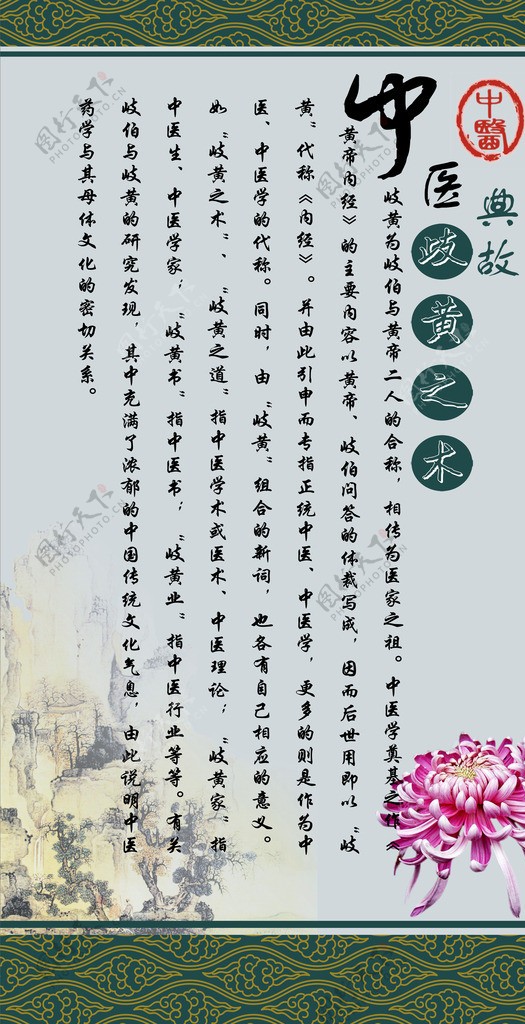 中醫
典故
中医
歧黄之术
歧黄为歧伯与黄帝二人的合称，相传为医家之祖。中医学奠基之作《
黄帝内经》的主要内容以黄帝、歧伯问答的体裁写成，因而后世用即以“歧
黄”代称《内经》。并由此引申而专指正统中医、中医学，更多的则是作为中
医、中医学的代称。同时，由“歧黄”组合的新词，也各有自己相应的意义。
如“歧黄之术”、“歧黄之道”指中医学术或医术、中医理论；“歧黄家”指
中医生、中医学家；“歧黄书”指中医书；“歧黄业”指中医行业等等。有关
歧伯与歧黄的研究发现，其中充满了浓郁的中国传统文化气息，由此说明中医
药学与其母体文化的密切关系。
图行天下
PHOTOPHOTO.CN